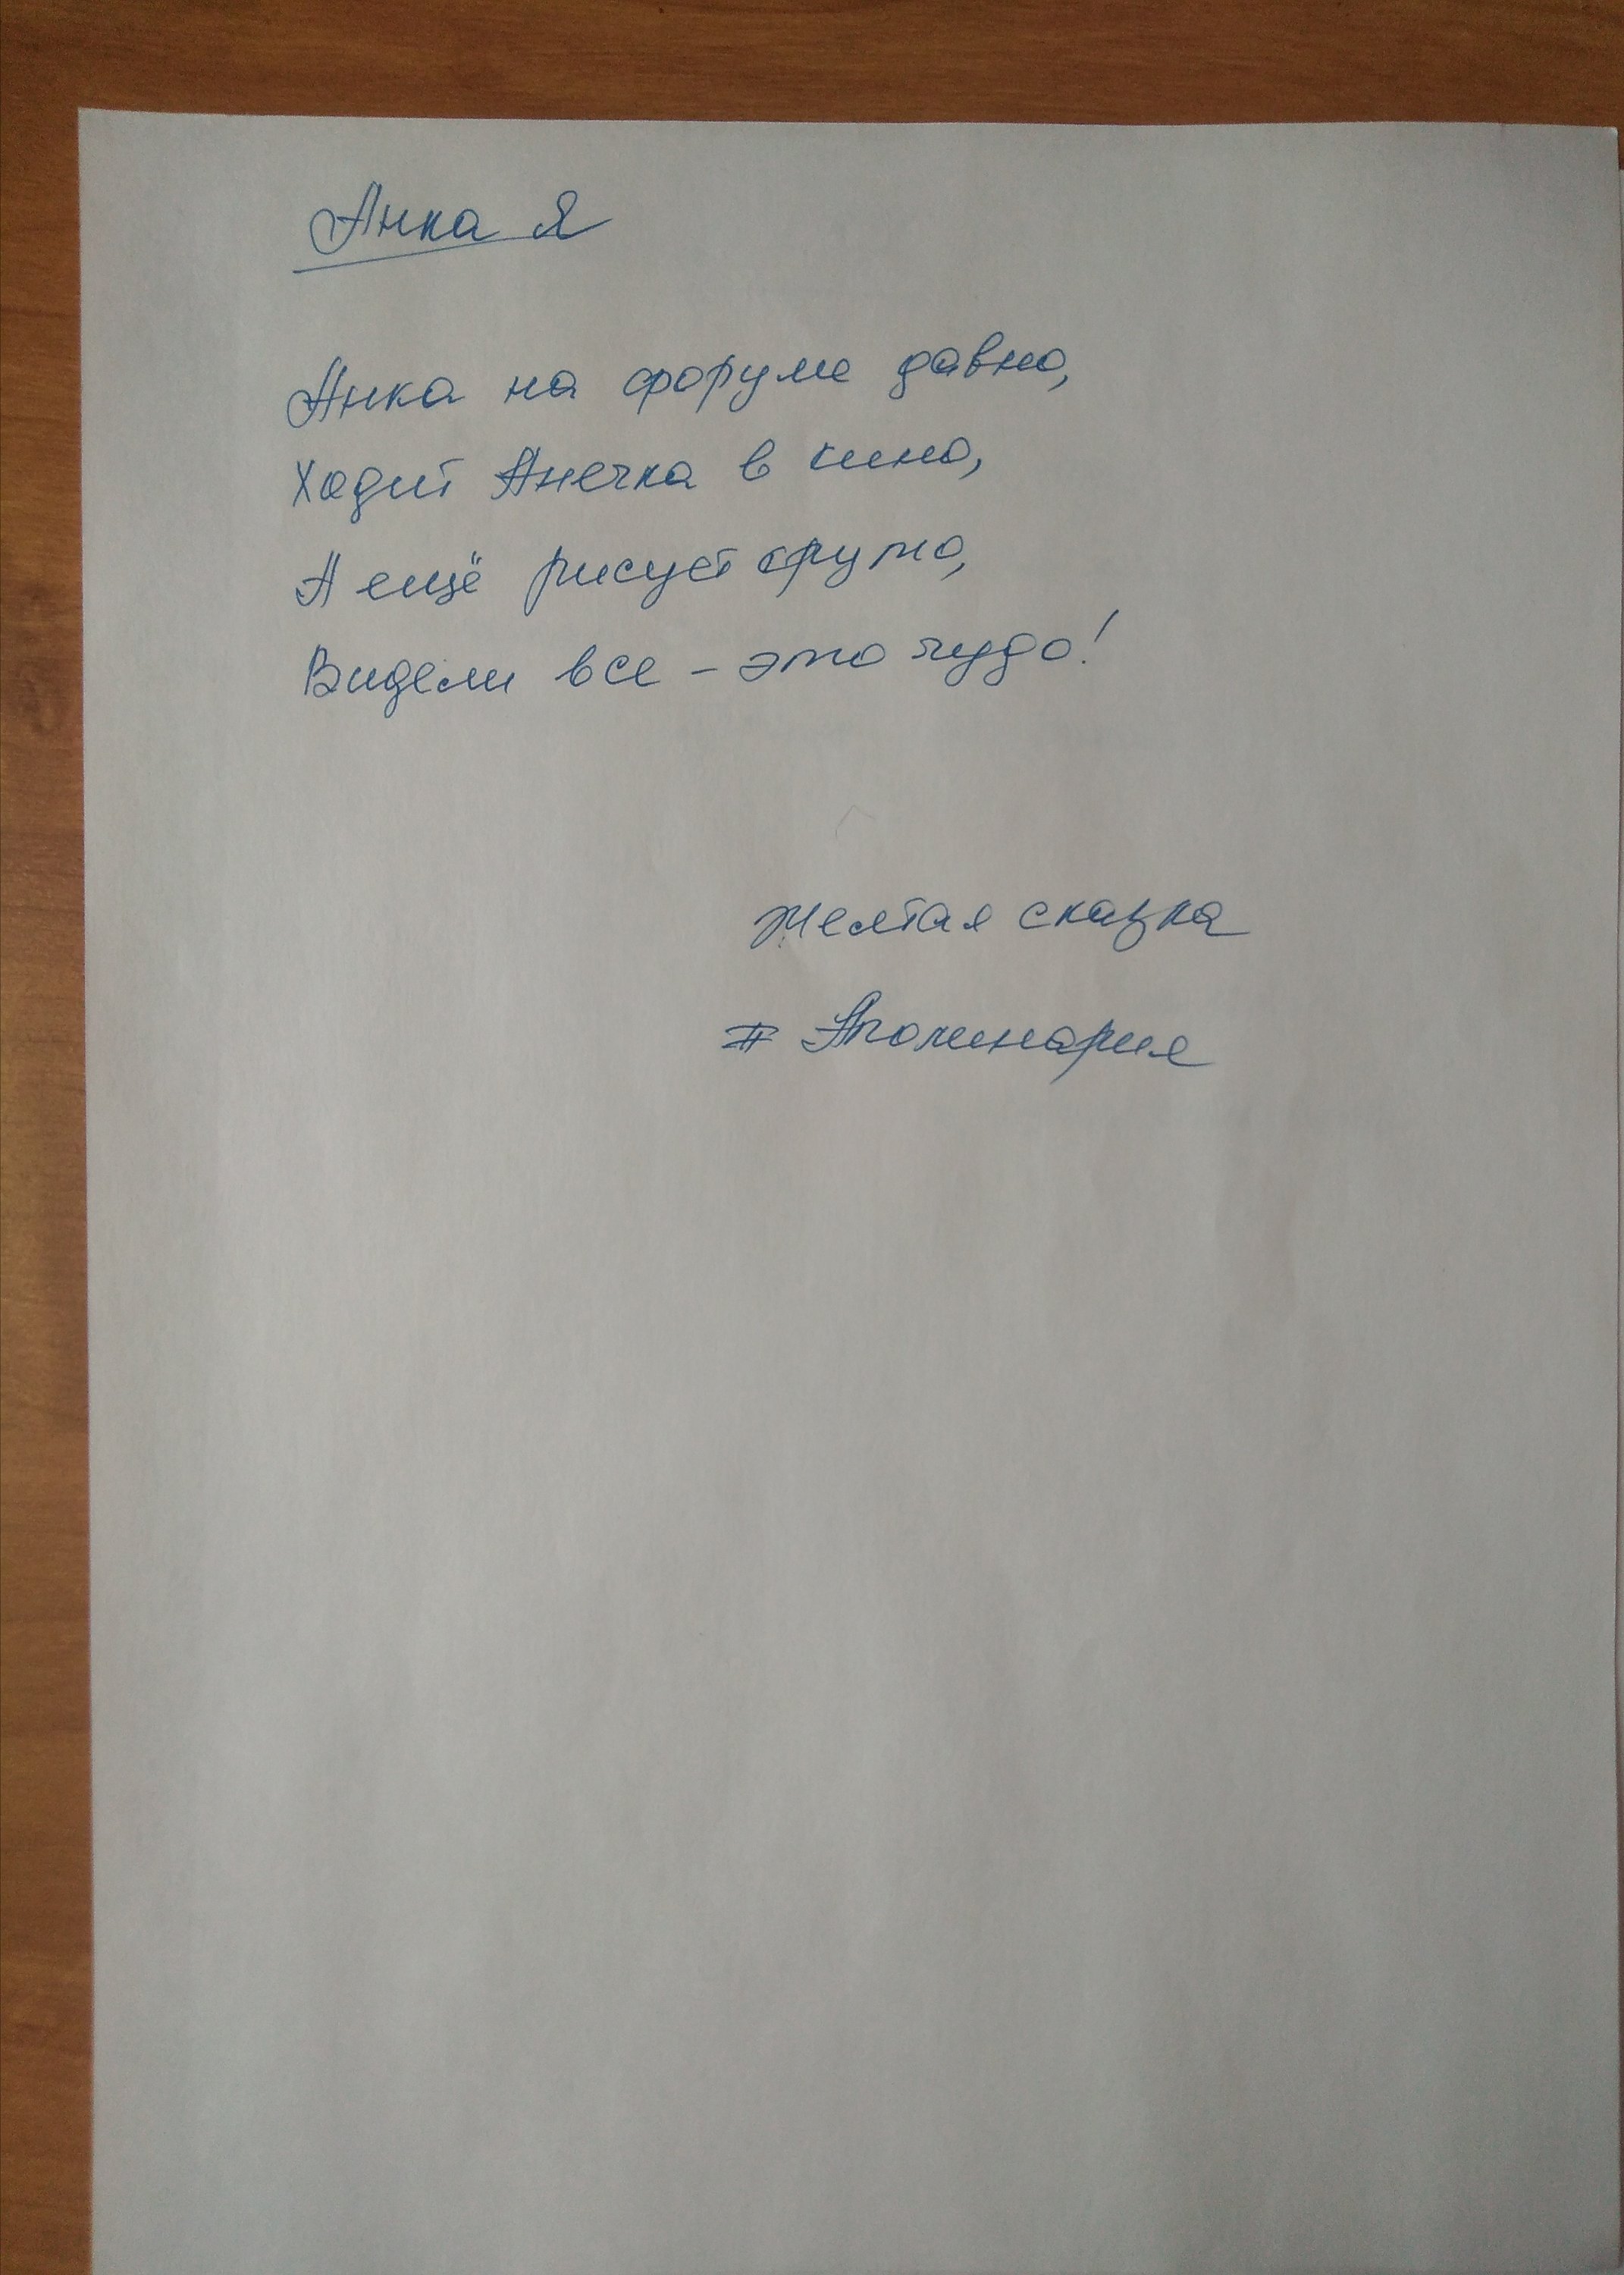 Анка Я
Анка на форуме давно,
Ходит Анечка в кино,
А ещё рисует круто,
Видели все - это чудо!
Желтая сказка
# Аполинария